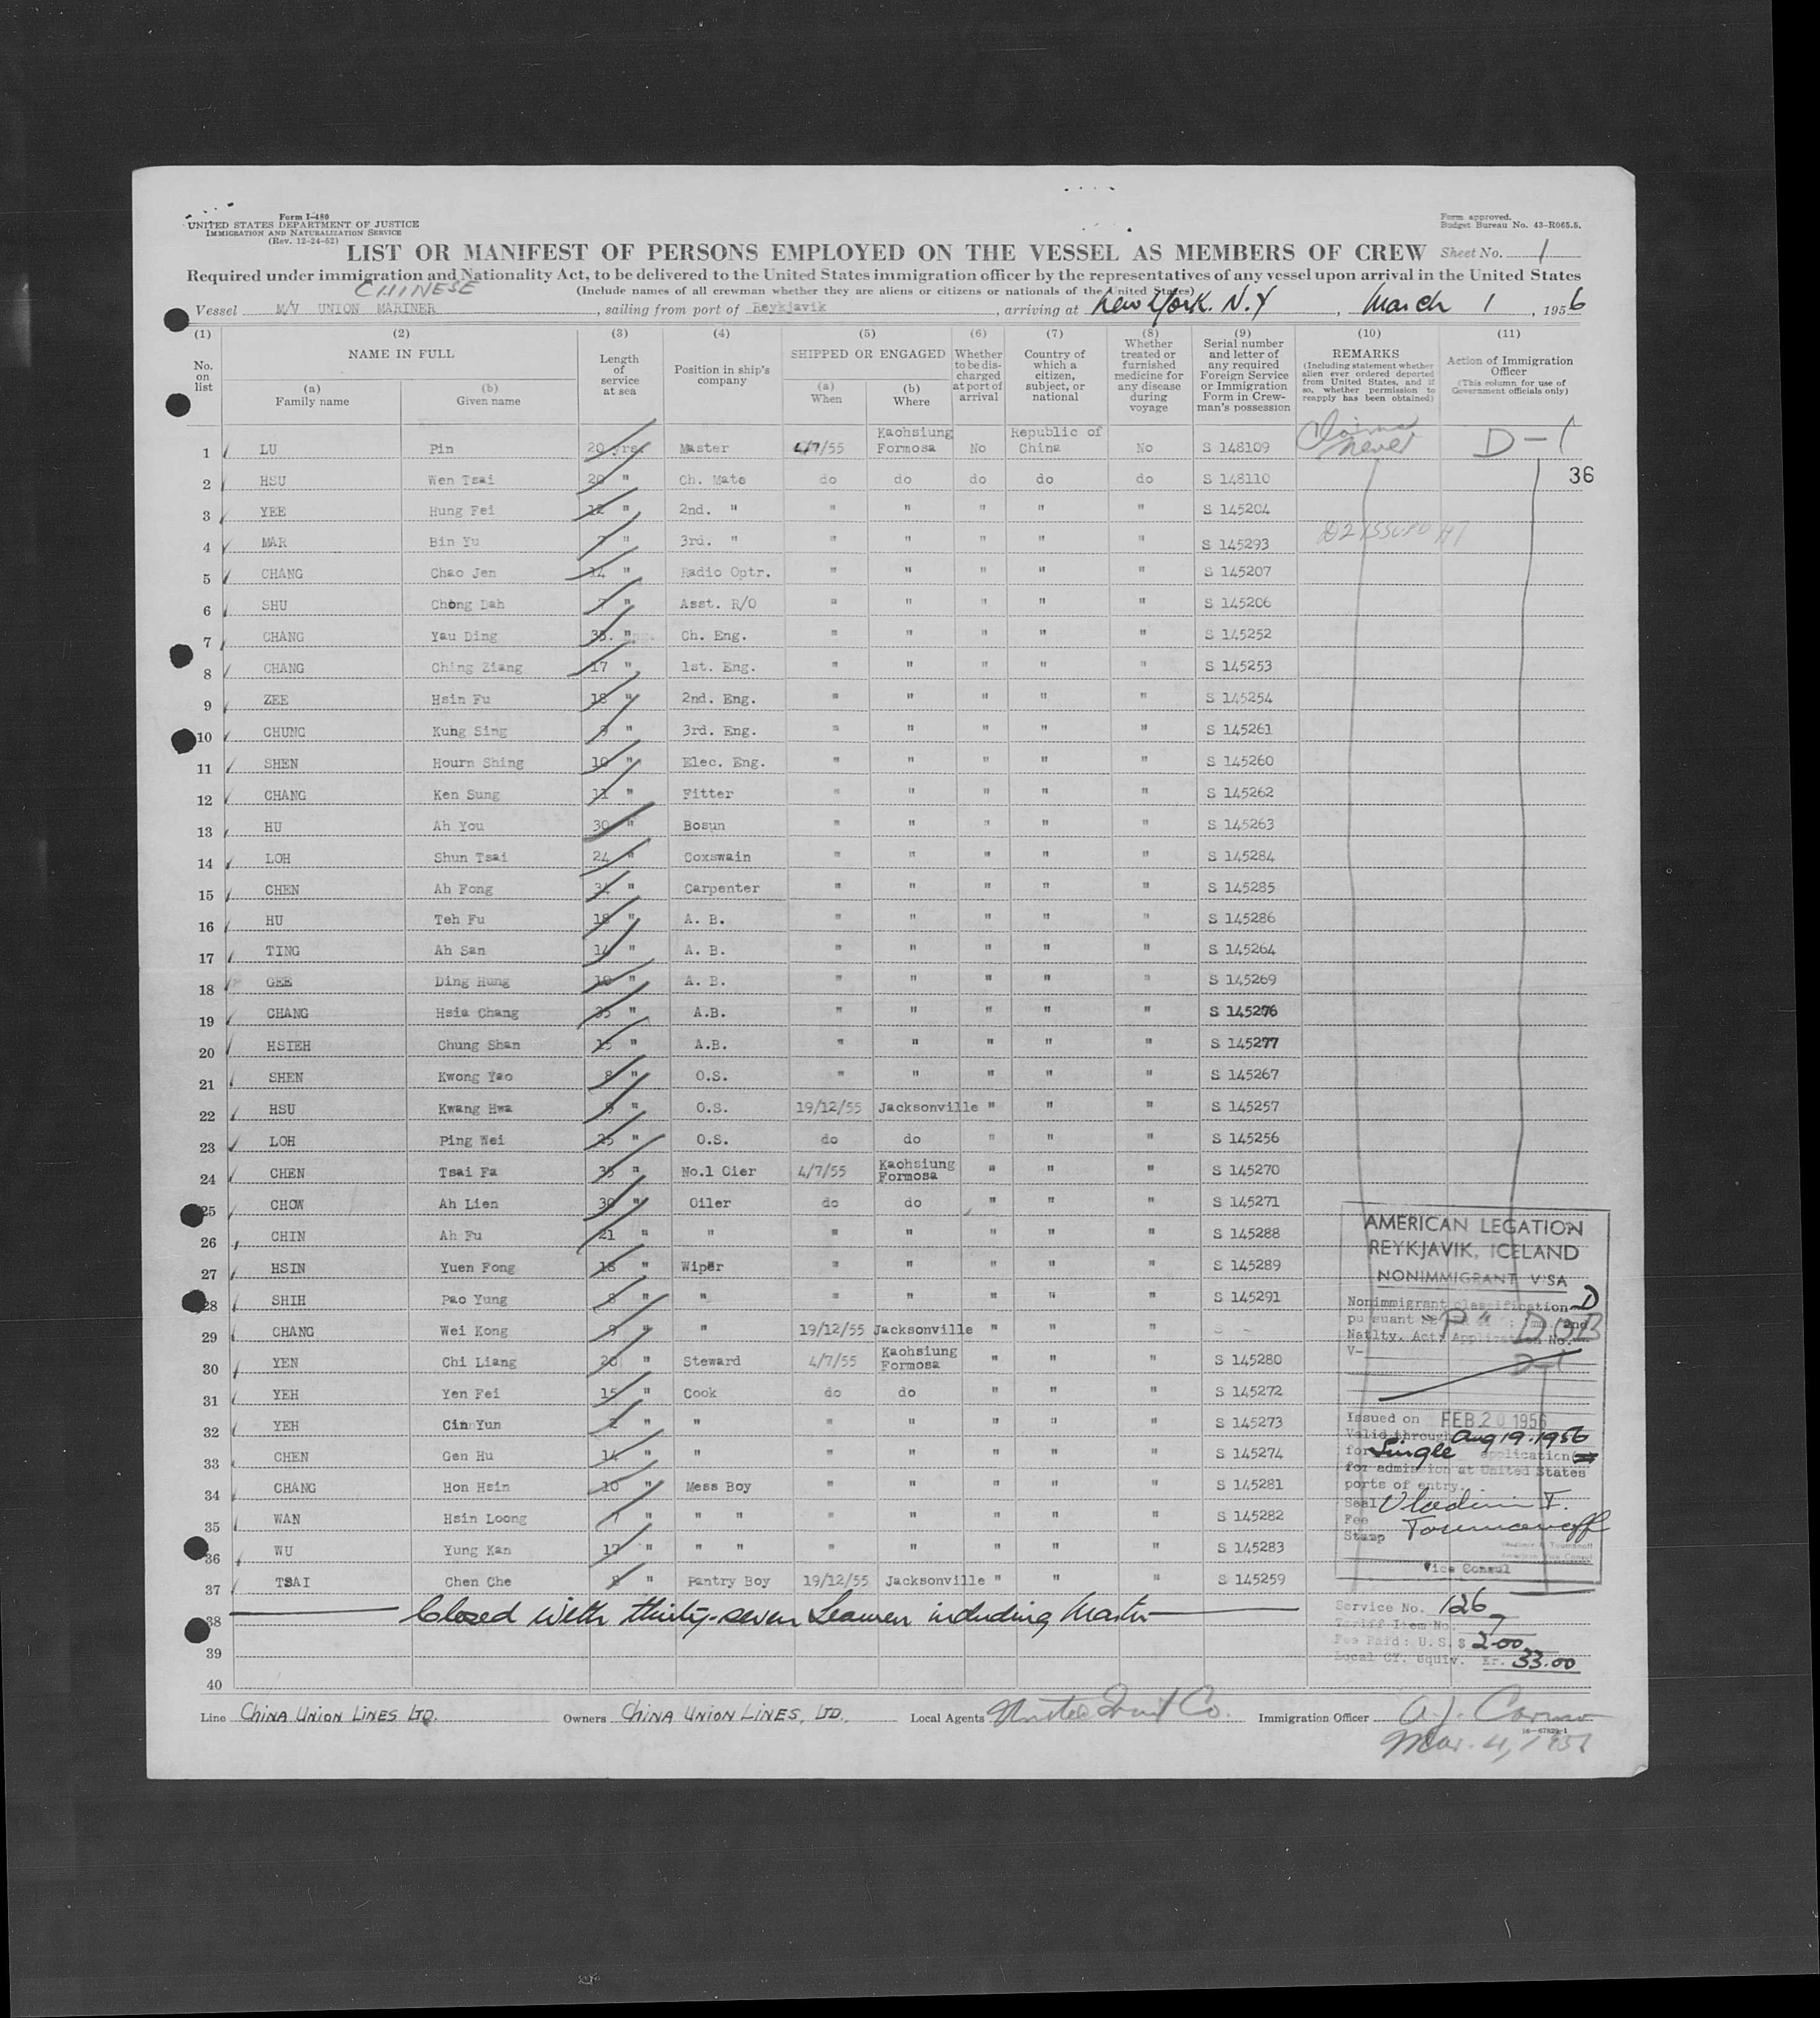 Form I-480
UNITED STATES DEPARTMENT OF JUSTICE
IMMIGRATION AND NATURALIZATION SERVICE
(Rev. 12-24-52)
Form approved.
Budget Bureau No. 43-R065.5.
LIST OR MANIFEST OF PERSONS EMPLOYED ON THE VESSEL AS MEMBERS OF CREW Sheet No. 1
Required under immigration and Nationality Act, to be delivered to the United States immigration officer by the representatives of any vessel upon arrival in the United States
(Include names of all crewman whether they are aliens or citizens or nationals of the United States)
CHINESE
Vessel M/V UNION MARINER, sailing from port of Reykjavik, arriving at New York. N.Y, March 1, 1956
(1) (2) (3) (4) (5) (6) (7) (8) (9) (10) (11)
No. on list
NAME IN FULL
(a) Family name
(b) Given name
Length of service at sea
Position in ship's company
SHIPPED OR ENGAGED
(a) When
(b) Where
Whether to be discharged at port of arrival
Country of which a citizen, subject, or national
Whether treated or furnished medicine for any disease during voyage
Serial number and letter of any required Foreign Service or Immigration Form in Crewman's possession
REMARKS
(Including statement whether alien ever ordered deported from United States, and if so, whether permission to reapply has been obtained)
Action of Immigration Officer
(This column for use of Government officials only)
1 LU Pin 20 yrs. Master 4/7/55 Kaohsiung Formosa No Republic of China No S 148109 Claims Never D-1
2 HSU Wen Tsai 20 " Ch. Mate do do do do do S 148110 36
3 YEE Hung Fei 12 " 2nd. " " " " " " S 145204
4 MAR Bin Yu 7 " 3rd. " " " " " " S 145293
5 CHANG Chao Jen 14 " Radio Optr. " " " " " S 145207
6 SHU Chong Dah 7 " Asst. R/O " " " " " S 145206
7 CHANG Yau Ding 35. " Ch. Eng. " " " " " S 145252
8 CHANG Ching Ziang 17 " 1st. Eng. " " " " " S 145253
9 ZEE Hsin Fu 18 " 2nd. Eng. " " " " " S 145254
10 CHUNG Kung Sing 9 " 3rd. Eng. " " " " " S 145261
11 SHEN Hourn Shing 10 " Elec. Eng. " " " " " S 145260
12 CHANG Ken Sung 11 " Fitter " " " " " S 145262
13 HU Ah You 30 " Bosun " " " " " S 145263
14 LOH Shun Tsai 24 " Coxswain " " " " " S 145284
15 CHEN Ah Fong 34 " Carpenter " " " " " S 145285
16 HU Teh Fu 18 " A. B. " " " " " S 145286
17 TING Ah San 14 " A. B. " " " " " S 145264
18 GEE Ding Hung 18 " A. B. " " " " " S 145269
19 CHANG Hsia Chang 35 " A.B. " " " " " S 145276
20 HSIEH Chung Shan 15 " A.B. " " " " " S 145277
21 SHEN Kwong Yao 8 " O.S. " " " " " S 145267
22 HSU Kwang Hwa 9 " O.S. 19/12/55 Jacksonville " " " S 145257
23 LOH Ping Wei 25 " O.S. do do " " " S 145256
24 CHEN Tsai Fa 35 " No.1 Oier 4/7/55 Kaohsiung Formosa " " " S 145270
25 CHOW Ah Lien 30 " Oiler do do " " " S 145271
26 CHIN Ah Fu 21 " " " " " " " S 145288
27 HSIN Yuen Fong 18 " Wiper " " " " " S 145289
28 SHIH Pao Yung 8 " " " " " " " S 145291
29 CHANG Wei Kong 9 " " 19/12/55 Jacksonville " " " S -
30 YEN Chi Liang 20 " Steward 4/7/55 Kaohsiung Formosa " " " S 145280
31 YEH Yen Fei 15 " Cook do do " " " S 145272
32 YEH Cin Yun 2 " " " " " " " S 145273
33 CHEN Gen Hu 14 " " " " " " " S 145274
34 CHANG Hon Hsin 10 " Mess Boy " " " " " S 145281
35 WAN Hsin Loong 7 " " " " " " " " S 145282
36 WU Yung Kan 17 " " " " " " " " S 145283
37 TSAI Chen Che 8 " Pantry Boy 19/12/55 Jacksonville " " " S 145259
38 Closed with thirty-seven Seamen including Master
39
40
AMERICAN LEGATION
REYKJAVIK, ICELAND
NONIMMIGRANT VISA
Nonimmigrant classification D
Natlty. Act; Application No.
V-
D-1
Issued on FEB 20 1956
Valid through Aug 19. 1956
for Single application
for admission at United States
ports of entry.
Seal Vladimir T.
Fee
Stamp Toumanoff
Vice Consul
Service No. 126
Tariff Item No. 7
Fee Paid: U.S.$ 2.00
Local CY. equiv. Kr. 33.00
Line CHINA UNION LINES LTD. Owners CHINA UNION LINES, LTD. Local Agents United Fruit Co. Immigration Officer A.J. Caruso
16-67829-1
Mar. 4, 1956